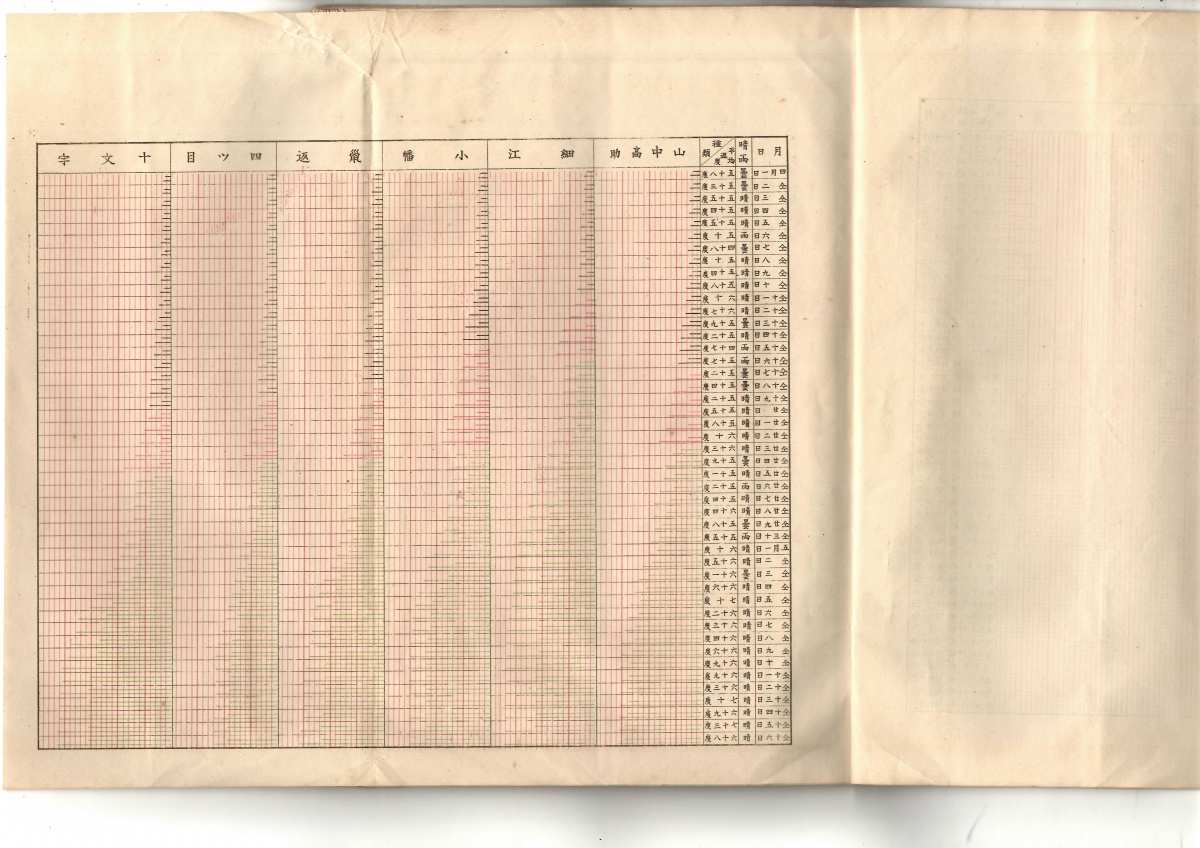 月日 晴雨 平均溫度 種類 山中高助 細江 小幡 鼠返 四ツ目 十文字
四月一日 曇 五十八度
仝二日 曇 五十三度
仝三日 晴 五十五度
仝四日 晴 五十四度
仝五日 晴 五十五度
仝六日 雨 五十度
仝七日 曇 四十八度
仝八日 晴 五十度
仝九日 晴 五十四度
仝十日 晴 五十八度
仝十一日 晴 六十度
仝十二日 晴 六十七度
仝十三日 曇 五十九度
仝十四日 晴 五十二度
仝十五日 雨 四十七度
仝十六日 雨 五十七度
仝十七日 曇 五十二度
仝十八日 曇 五十四度
仝十九日 晴 五十二度
仝廿日 晴 五十五度
仝廿一日 晴 五十八度
仝廿二日 晴 六十度
仝廿三日 晴 六十三度
仝廿四日 曇 五十九度
仝廿五日 晴 五十一度
仝廿六日 雨 五十二度
仝廿七日 晴 五十四度
仝廿八日 晴 六十四度
仝廿九日 曇 五十八度
仝三十日 雨 五十五度
五月一日 晴 六十度
仝二日 晴 六十五度
仝三日 曇 六十一度
仝四日 晴 六十六度
仝五日 晴 七十度
仝六日 晴 六十二度
仝七日 晴 六十三度
仝八日 晴 六十四度
仝九日 晴 六十六度
仝十日 晴 六十九度
仝十一日 晴 六十九度
仝十二日 晴 六十三度
仝十三日 晴 七十度
仝十四日 晴 六十九度
仝十五日 晴 七十三度
仝十六日 晴 六十八度